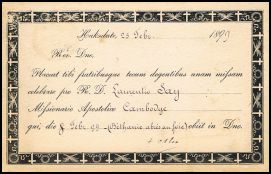 Hakodate, 23 Febr. 1899
Rev. Dne.
Placeat tibi fratribusque tecum degentibus unam missam
celebrare pro R. D. Laurentio Say
Missionario Apostolico Cambodge
qui, die 8 Febr. 99 (Béthanie abiés au foie) obiit in Dno.